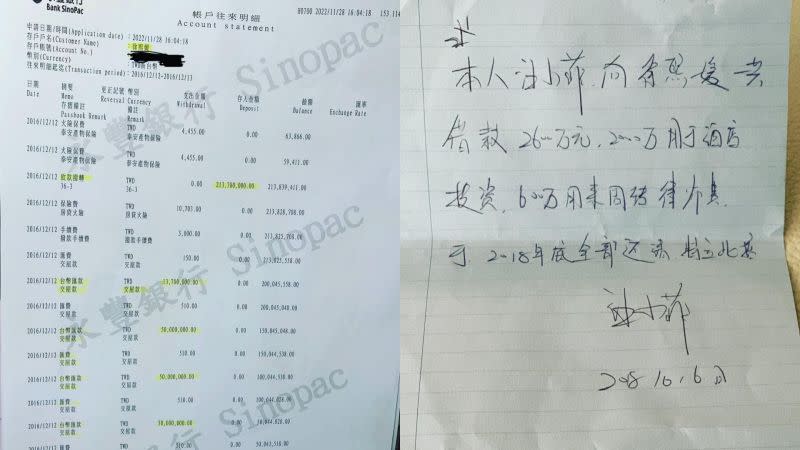 永豐銀行
Bank SinoPac
帳戶往來明細
Account statement
B0700 2022/11/28 16:04:18 153.114
申請日期/時間(Application date) : 2022/11/28 16:04:18
存戶戶名(Customer Name) :
存戶帳號(Account No.) :
幣別(Currency) : TWD新台幣
往來明細起迄(Transaction period) : 2016/12/12-2016/12/13
日期 摘要 更正記號 幣別 支出金額 存入金額 餘額 匯率
Date Memo Reversal Currency Withdrawal Deposit Balance Exchange Rate
存摺備註 備註
Passbook Remark Remark
2016/12/12 火險保費 TWD 4,455.00 0.00 63,866.00
泰安產物保險 泰安產物保險
2016/12/12 火險保費 TWD 4,455.00 0.00 59,411.00
泰安產物保險 泰安產物保險
2016/12/12 放款撥轉 TWD 0.00 213,780,000.00 213,839,411.00
36-3 36-3
2016/12/12 保險費 TWD 10,703.00 0.00 213,828,708.00
房貸火險 房貸火險
2016/12/12 手續費 TWD 3,000.00 0.00 213,825,708.00
撥款手續費 撥款手續費
2016/12/12 匯費 TWD 150.00 0.00 213,825,558.00
交屋款 交屋款
2016/12/12 台幣匯款 TWD 13,780,000.00 0.00 200,045,558.00
交屋款 交屋款
2016/12/12 匯費 TWD 510.00 0.00 200,045,048.00
交屋款 交屋款
2016/12/12 台幣匯款 TWD 50,000,000.00 0.00 150,045,048.00
交屋款 交屋款
2016/12/12 匯費 TWD 510.00 0.00 150,044,538.00
交屋款 交屋款
2016/12/12 台幣匯款 TWD 50,000,000.00 0.00 100,044,538.00
交屋款 交屋款
2016/12/12 匯費 TWD 510.00 0.00 100,044,028.00
交屋款 交屋款
2016/12/12 台幣匯款 TWD 50,000,000.00 0.00
交屋款 交屋款
2016/12/12 匯費 TWD 510.00 0.00 50,043,518.00
永豐銀行 Sinopac
永豐銀行 Sinopac
本人汪小菲,向徐熙媛共
借款2600万元,2000万用于酒店
投资,600万用来周转
于2018年底全部还清
汪小菲
2018.10.6日